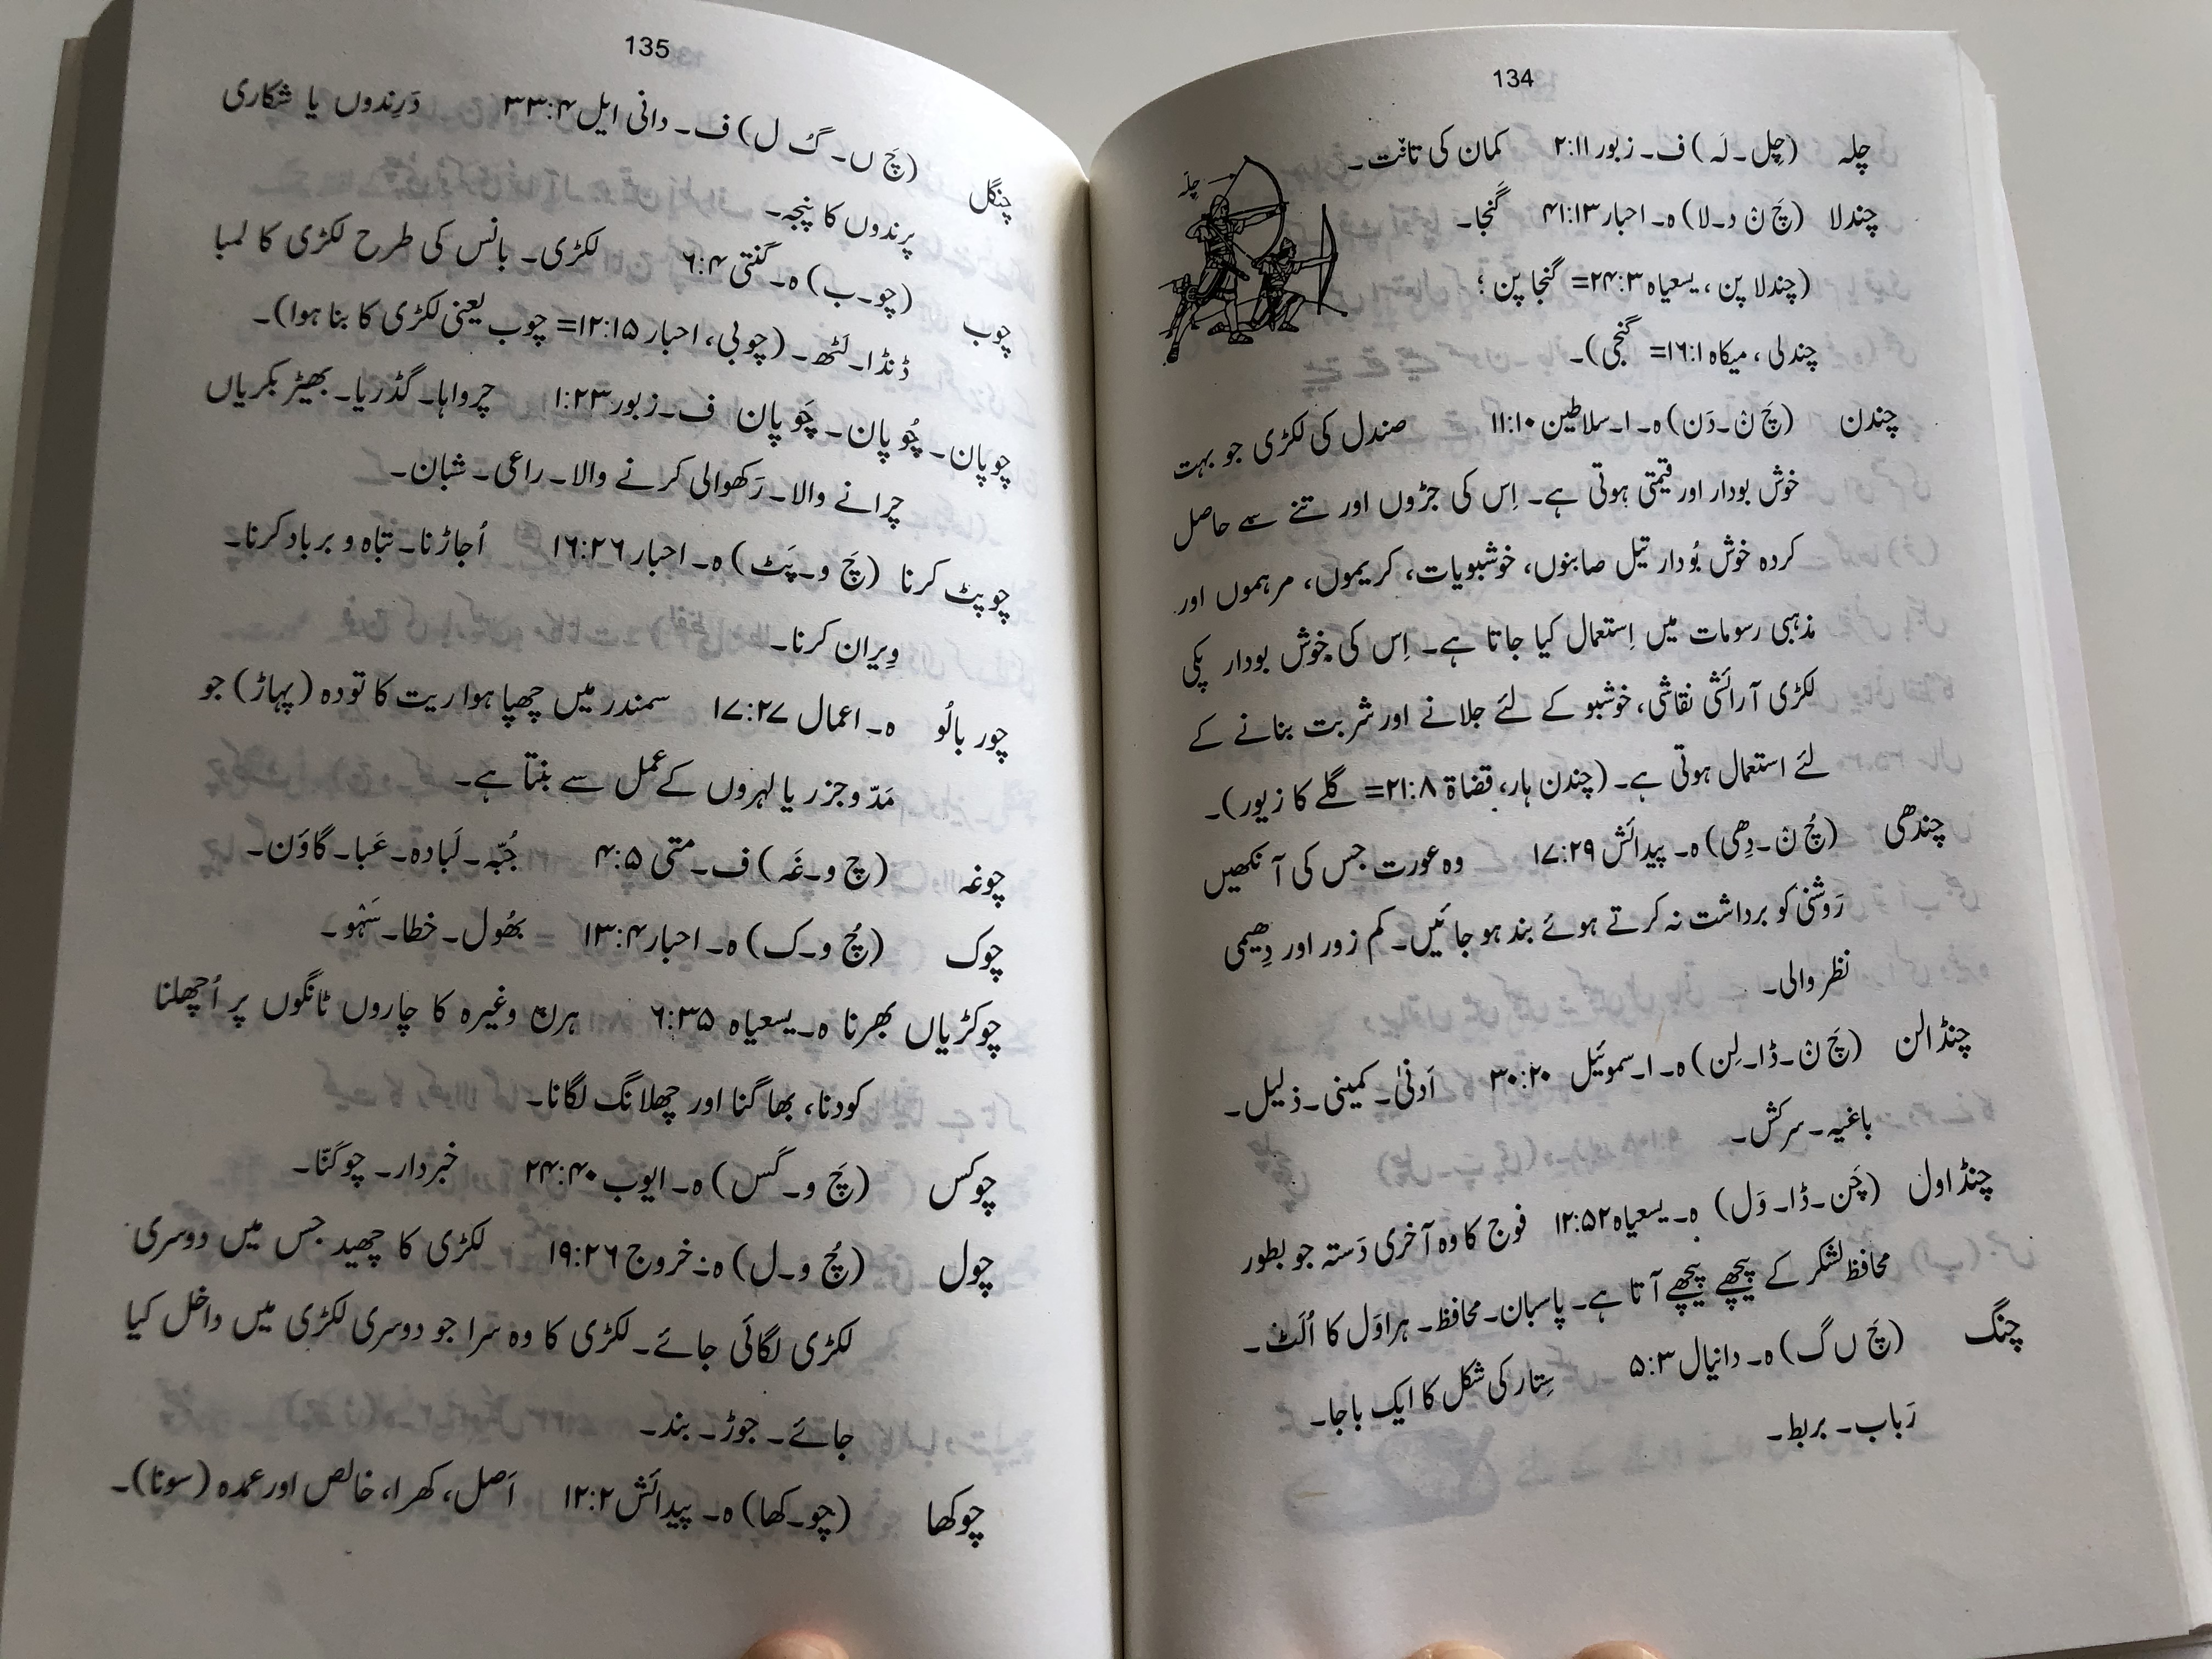 134
چلہ (چِل۔لَہ) ف۔ زبور ۲:۱۱ کمان کی تانْت۔
چلہ
چندلا (چَ نْ د۔لا) ہ۔ احبار ۴۱:۱۳ گنجا۔
(چندلا پن، یسعیاہ ۲۴:۳= گنجا پن؛
چندلی، میکاہ ۱۶:۱= گنجی)۔
چندن (چَ نْ۔دَن) ہ۔ ا۔سلاطین ۱۱:۱۰ صندل کی لکڑی جو بہت
خوش بودار اور قیمتی ہوتی ہے۔ اِس کی جڑوں اور تنے سے حاصل
کردہ خوش بُودار تیل صابنوں، خوشبویات، کریموں، مرہموں اور
مذہبی رسومات میں اِستعمال کیا جاتا ہے۔ اِس کی خوش بودار پکی
لکڑی آرائشی نقاشی، خوشبو کے لئے جلانے اور شربت بنانے کے
لئے استعمال ہوتی ہے۔ (چندن ہار، قضاۃ ۲۱:۸= گلے کا زیور)۔
چندھی (چُ نْ۔دِھی) ہ۔ پیدائش ۱۷:۲۹ وہ عورت جس کی آنکھیں
رَوشنی کو برداشت نہ کرتے ہوئے بند ہو جائیں۔ کم زور اور دِھیمی
نظر والی۔
چنڈالن (چَ نْ۔ڈا۔لِن) ہ۔ ا۔سموئیل ۳۰:۲۰ اَدنیٰ۔ کمینی۔ ذلیل۔
باغیہ۔ سرکش۔
چنڈاول (چَن۔ڈا۔وَل) ہ۔ یسعیاہ ۱۲:۵۲ فوج کا وہ آخری دَستہ جو بطور
محافظ لشکر کے پیچھے پیچھے آتا ہے۔ پاسبان۔ محافظ۔ ہراوَل کا اُلَٹ۔
چنگ (چَ ں گ) ہ۔ دانیال ۵:۳ سِتار کی شکل کا ایک باجا۔
رَباب۔ بربط۔
135
چنگل (چَ ں۔گُ ل) ف۔ دانی ایل ۳۳:۴ دَرِندوں یا شکاری
پرندوں کا پنجہ۔
چوب (چو۔ب) ہ۔ گنتی ۶:۴ لکڑی۔ بانس کی طرح لکڑی کا لمبا
ڈنڈا۔ لَٹھ۔ (چوبی، احبار ۱۲:۱۵= چوب یعنی لکڑی کا بنا ہوا)۔
چوپان۔ چُوپان۔ چَوپان ف۔ زبور ۱:۲۳ چرواہا۔ گڈریا۔ بھیڑ بکریاں
چرانے والا۔ رَکھوالی کرنے والا۔ راعی۔ شبان۔
چوپٹ کرنا (چَ و۔پَٹ) ہ۔ احبار ۱۶:۲۶ اُجاڑنا۔ تباہ و برباد کرنا۔
وِیران کرنا۔
چور بالُو ہ۔ اعمال ۱۷:۲۷ سمندر میں چھپا ہوا ریت کا تودہ (پہاڑ) جو
مَدّ و جزر یا لہروں کے عمل سے بنتا ہے۔
چوغہ (چ و۔غَہ) ف۔ متی ۴:۵ جُبّہ۔ لَبادہ۔ عَبا۔ گاوَن۔
چوک (چُ و۔ک) ہ۔ احبار ۱۳:۴ بھُول۔ خطا۔ سَہْو۔
چوکڑیاں بھرنا ہ۔ یسعیاہ ۶:۳۵ ہرن وغیرہ کا چاروں ٹانگوں پر اُچھلنا
کودنا، بھاگنا اور چھلانگ لگانا۔
چوکس (چَ و۔کَس) ہ۔ ایوب ۲۴:۴۰ خبردار۔ چوکَنّا۔
چول (چُ و۔ل) ہ۔ خروج ۱۹:۲۶ لکڑی کا چھید جس میں دوسری
لکڑی لگائی جائے۔ لکڑی کا وہ سرا جو دوسری لکڑی میں داخل کیا
جائے۔ جوڑ۔ بند۔
چوکھا (چو۔کھا) ہ۔ پیدائش ۱۲:۲ اَصل، کھرا، خالص اور عمدہ (سونا)۔